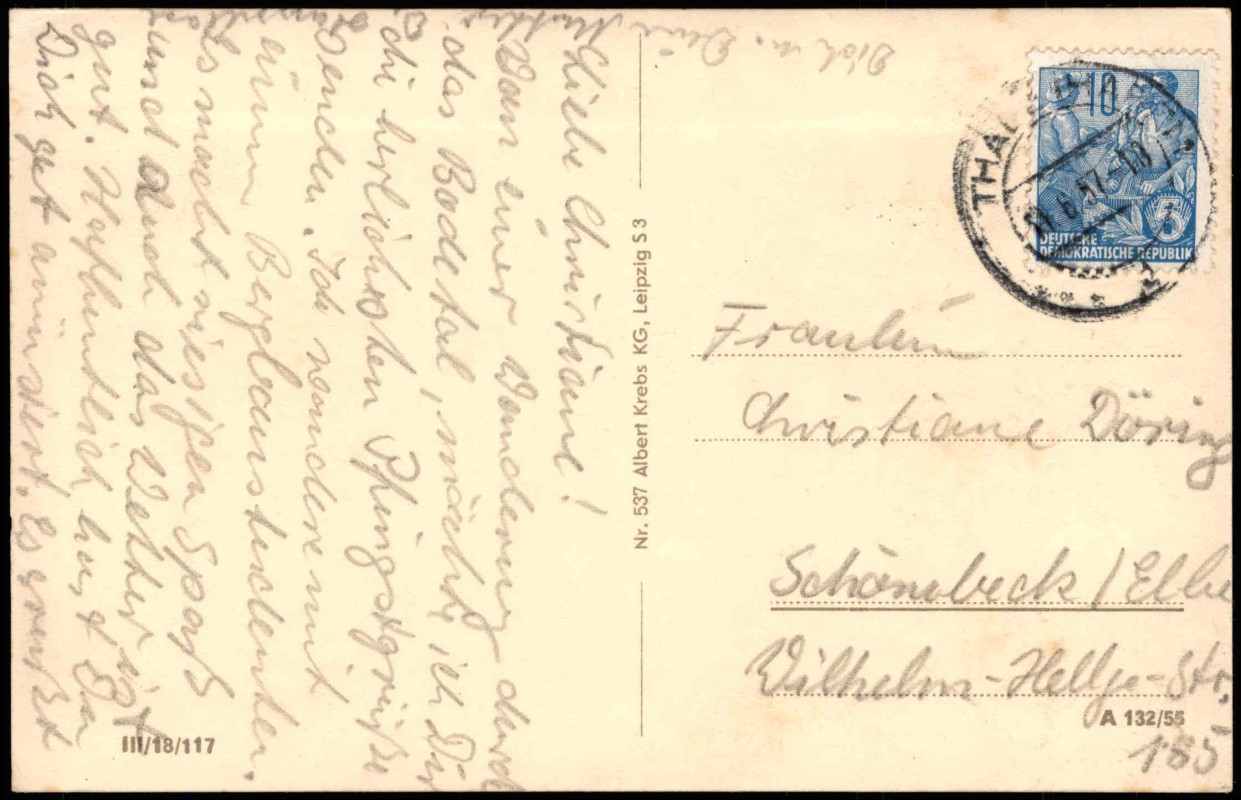 Liebe Christiane!
Von einer Wanderung durch
das Bodetal, möchte ich Dir
die herlichsten Pfingstgrüße
senden. Ich wandere mit
einem Berglaustudenten.
Es macht riesigen Spaß
und auch das Wetter ist
gut. Hoffendlich hast Du
Dich gut amüsiert. Es grüßt
Dich u. Deine Mutter
Nr. 537 Albert Krebs KG, Leipzig S 3
III/18/117
10
5
DEUTSCHE
DEMOKRATISCHE REPUBLIK
6.57-18
Fräulein
Christiane Döring
Schönebeck / Elbe
Wilhelm-Hellge-Str.
185
A 132/55